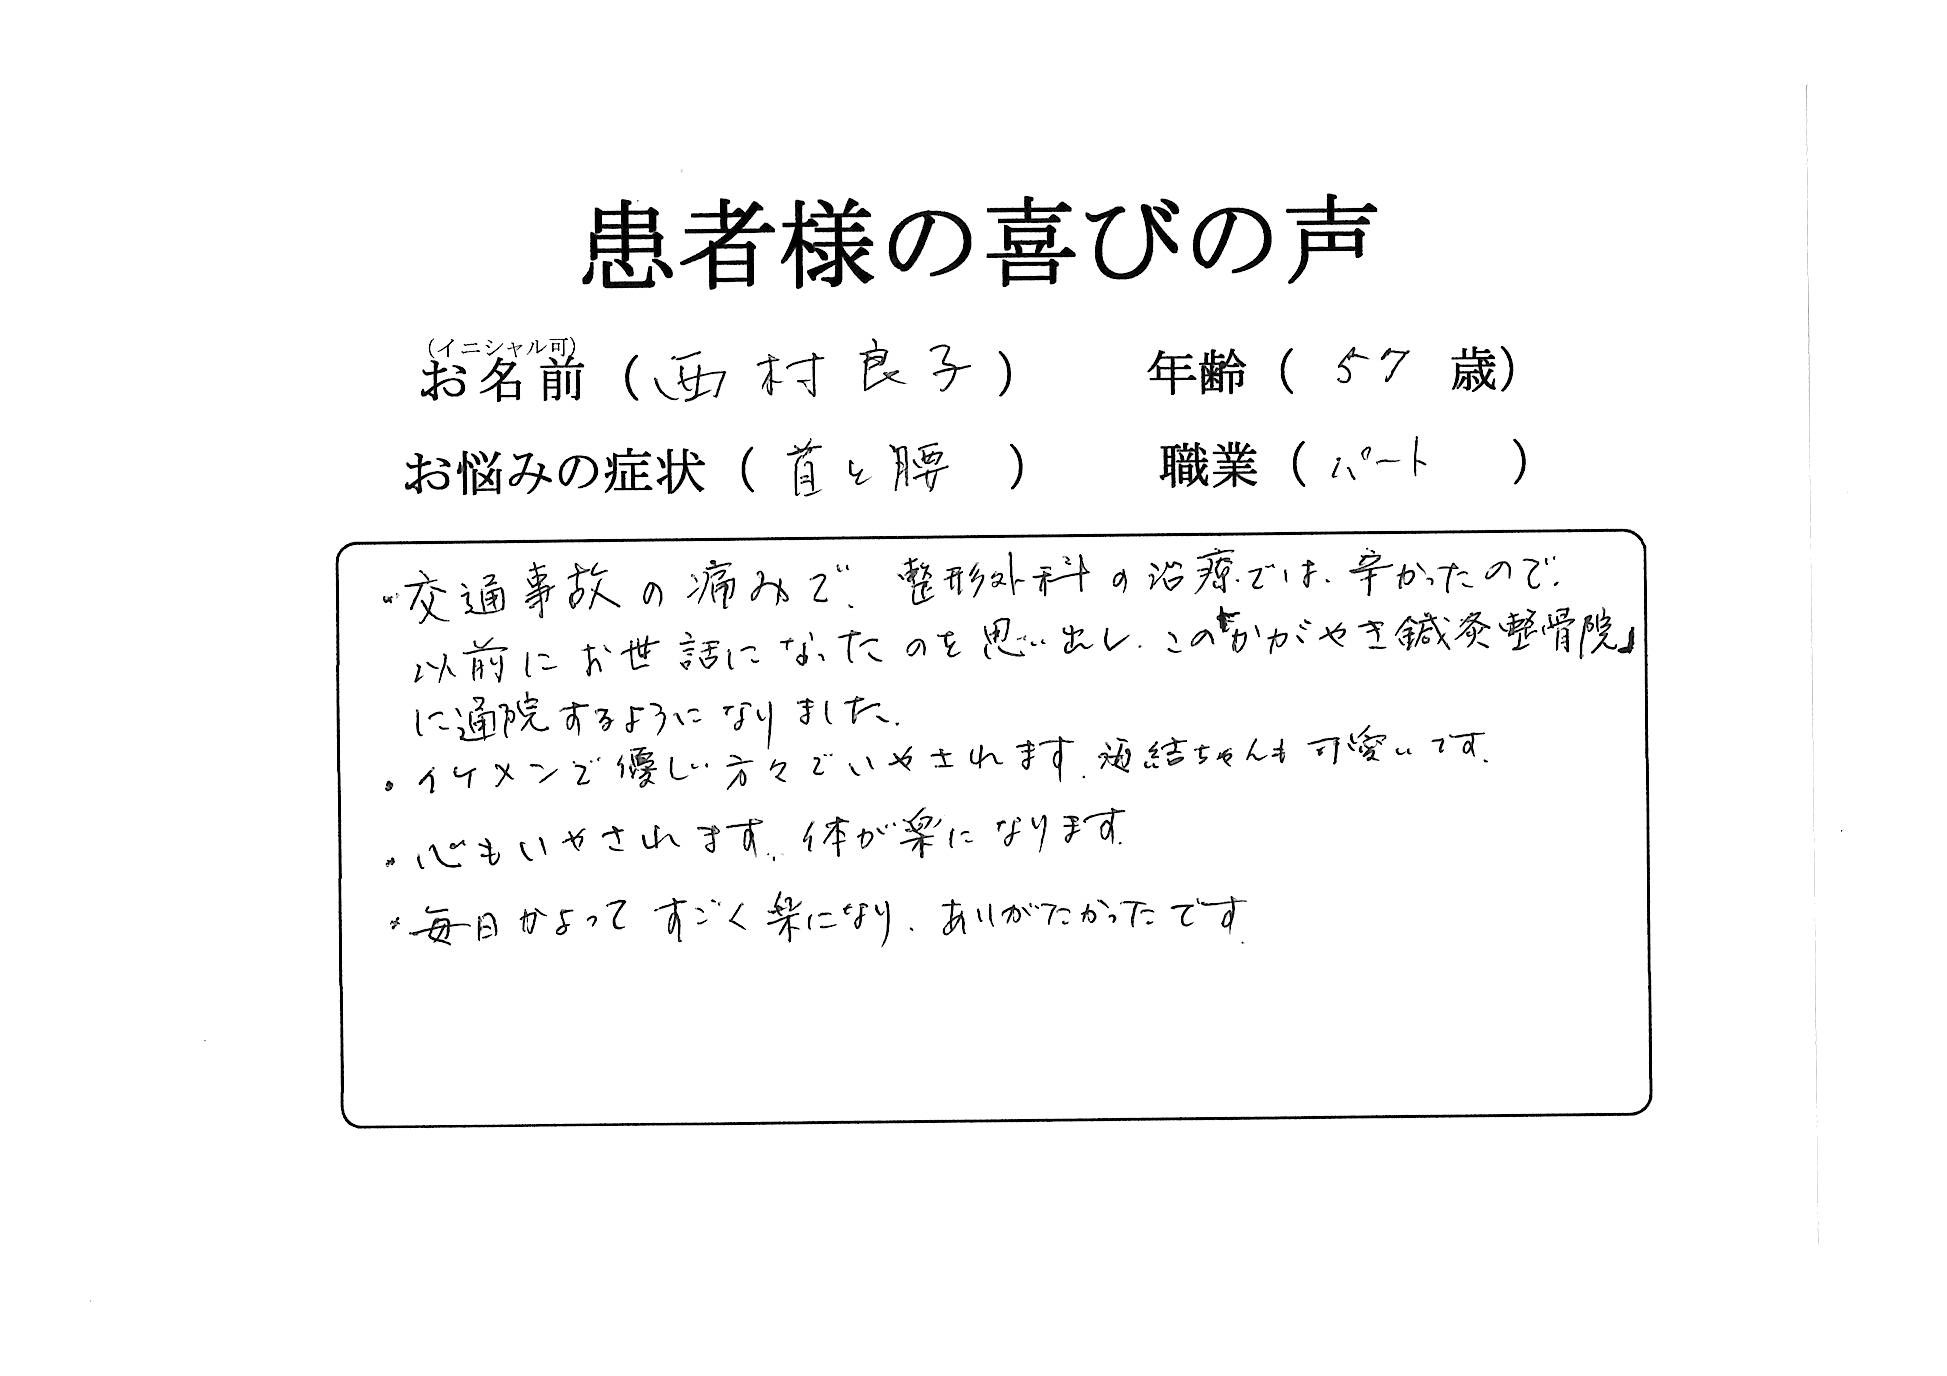 患者様の喜びの声
(イニシャル可)
お名前（西村良子） 年齢（57歳）
お悩みの症状（首と腰） 職業（パート）
・交通事故の痛みで、整形外科の治療では、辛かったので、
以前にお世話になったのを思い出し、この「かがやき鍼灸整骨院」
に通院するようになりました。
・イケメンで優しい方々でいやされます。結ちゃんも可愛いです。
・心もいやされます。体が楽になります。
・毎日かよってすごく楽になり、ありがたかったです。